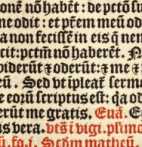 onē nō habēt: de pctō su
me odit: et prēm meū od
a non fecissē in eis q̄ nem
cit: pctm̄ nō haberēt. N
viderūt ⁊ oderūt: ⁊ me ⁊
m̄. Sed vt ipleat̄ sermo
e eorū scriptus est: qa od
erūt me gratis. Euā.
us vera. vts̄ i vigi. ps̄
Scd̄m matheū.